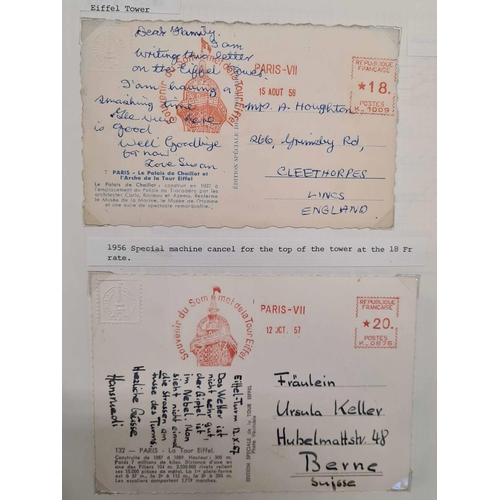 Eiffel Tower
Dear Family,
I am
writing this letter
on the Eiffel Tower
I'm having a
smashing time
here
is good
Well Goodbye
for now
Love Susan
Souvenir du Sommet de la Tour Eiffel
PARIS-VII
15 AOUT 56
REPUBLIQUE
FRANÇAISE
★18.
POSTES
K.1009
A. Houghton
266, Grimsby Rd,
CLEETHORPES
LINCS
ENGLAND
7 PARIS - Le Palais de Chaillot et
l'Arche de la Tour Eiffel
Le Palais de Chaillot, construit en 1937 à
l'emplacement du Palais du Trocadéro par les
architectes Carlu, Boileau et Azema. Renferme
le Musée de la Marine, le Musée de l'Homme
et une suite de spectacle remarquable.
ÉDITION SPÉCIALE
1956 Special machine cancel for the top of the tower at the 18 Fr
rate.
Souvenir du Sommet de la Tour Eiffel
PARIS-VII
12 OCT. 57
REPUBLIQUE
FRANÇAISE
★20.
POSTES
K.0876
Eiffel-turm 12.X.57
Das Wetter ist
nicht sehr gut
der Gipfel ist
im Nebel. Man
sieht nicht einmal
die Strassen am
Fusse des Turmes
Herzliche Grüsse
Hansruedi
Fräulein
Ursula Keller
Hubelmattstr. 48
Berne
Suisse
132 - PARIS - La Tour Eiffel.
Construite de 1887 à 1889. Hauteur : 300 m.
EDITION SPECIALE DE LA TOUR EIFFEL